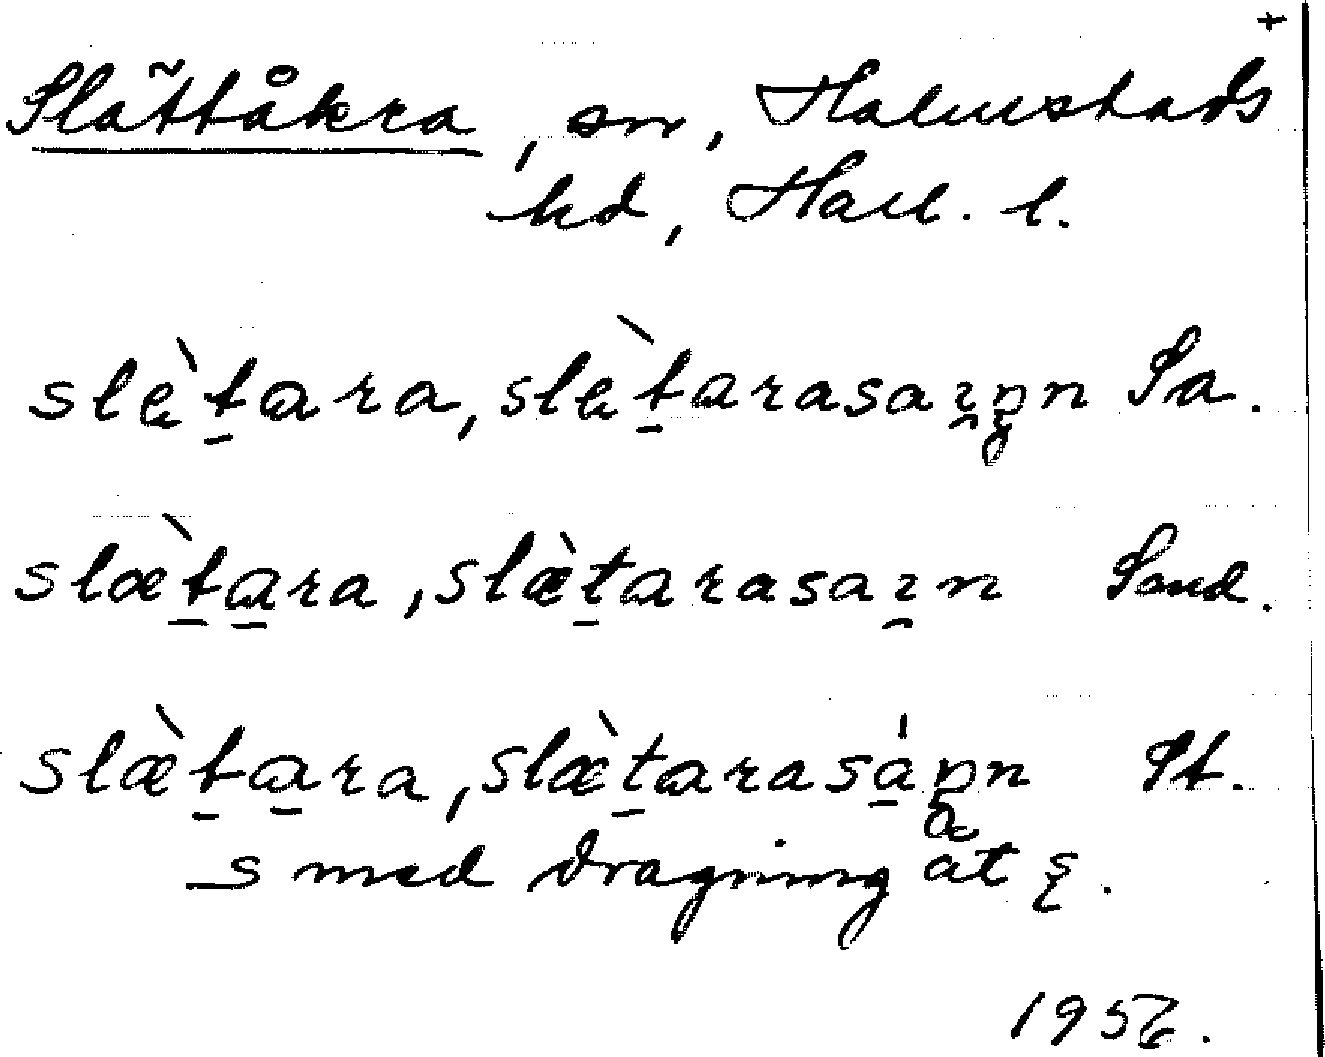 +
Slättåkra, sn, Halmstads
hd, Hall. l.
slètara, slètarasaɿpn Sa.
slætara, slætarasaɿn Send.
slætara, slætarasápn St.
s med dragning åt ş.
1956.